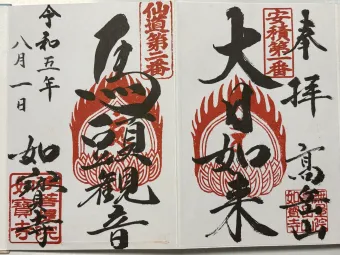 奉拝
安積第一番
大日如来
高岳山
如寶寺
仙道第三番
馬頭観音
令和五年
八月一日
如寶寺
如寶寺